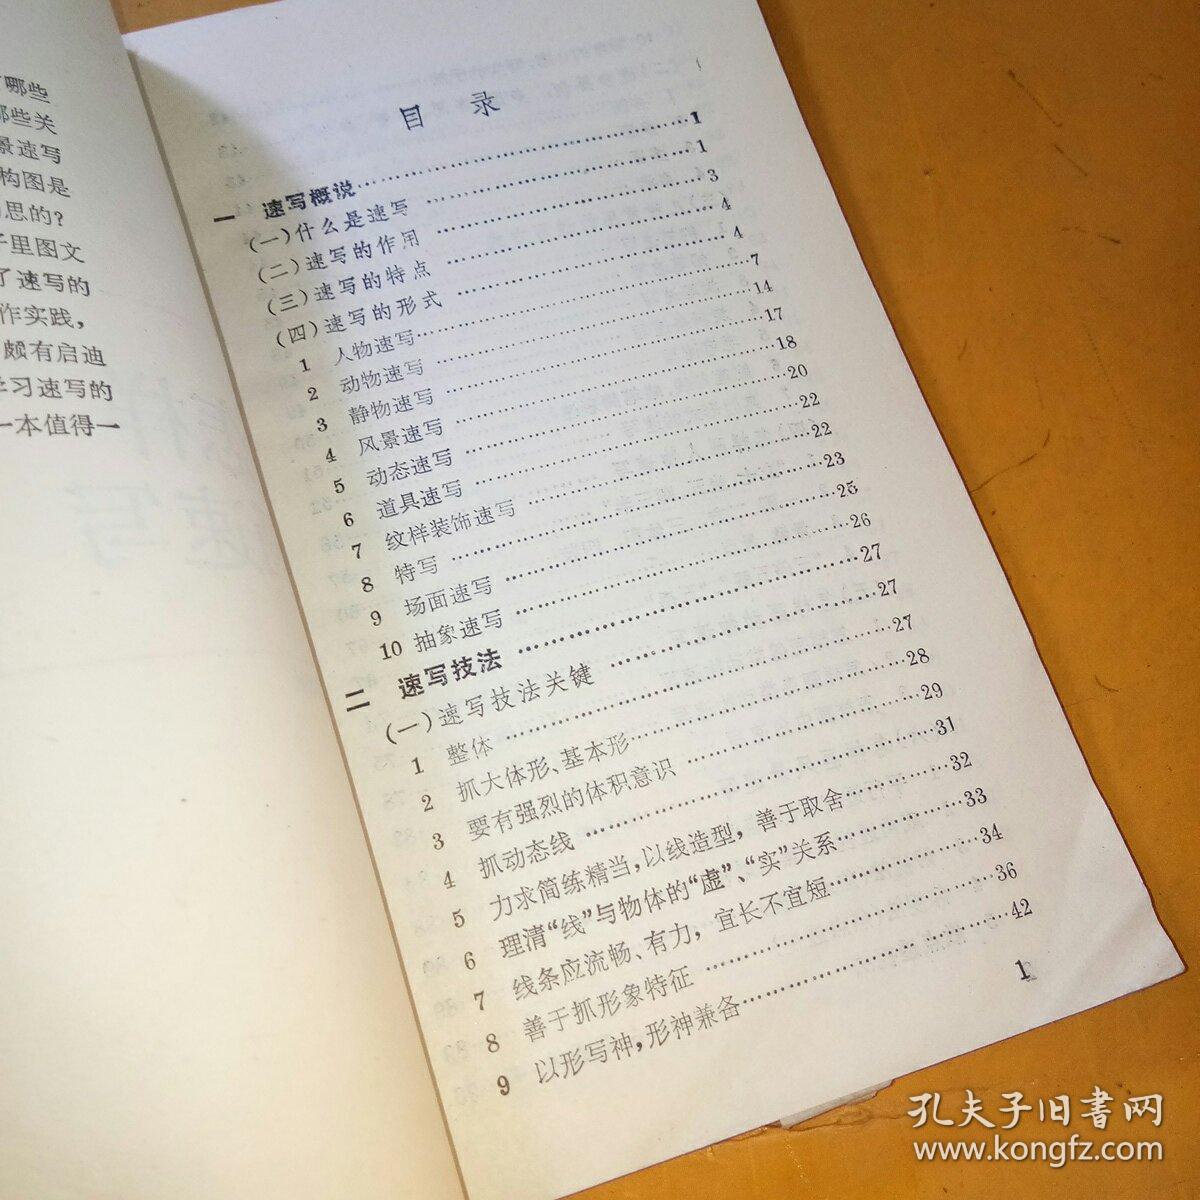 哪些
些关
景速写
构图是
思的？
子里图文
了速写的
作实践，
颇有启迪
学习速写的
一本值得一
目 录
一 速写概说……1
(一)什么是速写……1
(二)速写的作用……3
(三)速写的特点……4
(四)速写的形式……4
1 人物速写……7
2 动物速写……14
3 静物速写……17
4 风景速写……18
5 动态速写……20
6 道具速写……22
7 纹样装饰速写……22
8 特写……23
9 场面速写……25
10 抽象速写……26
二 速写技法……27
(一)速写技法关键……27
1 整体……27
2 抓大体形、基本形……28
3 要有强烈的体积意识……29
4 抓动态线……31
5 力求简练精当，以线造型，善于取舍……32
6 理清“线”与物体的“虚”、“实”关系……33
7 线条应流畅、有力，宜长不宜短……34
8 善于抓形象特征……36
9 以形写神，形神兼备……42
1
速写
孔夫子旧书网
www.kongfz.com